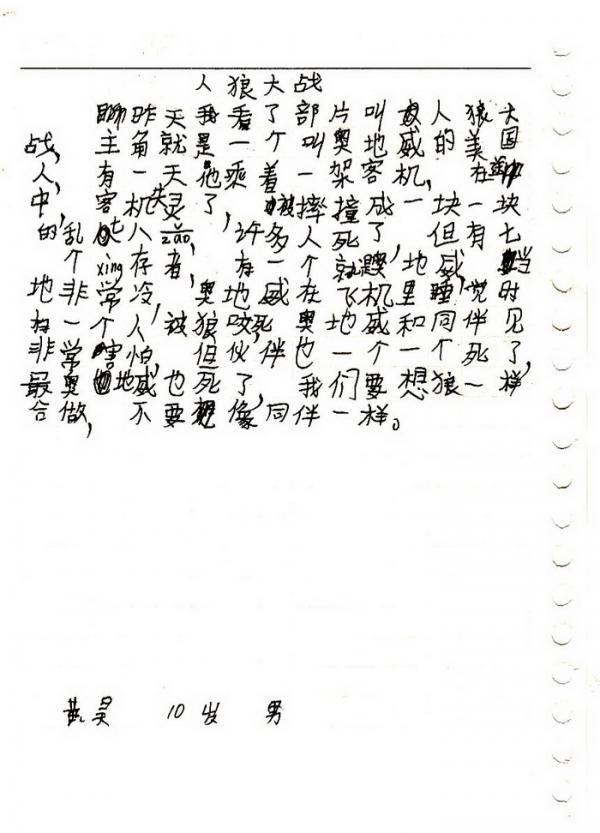 人狼大战
昨天我看了部片叫人狼大
战,主角就是一个叫奥地威的美国
人,有一天他乘着一架客机,在途
中,客机失灵了,被摔撞成一块一块
的,乱七八zao,许多人死了,但有七
个xing存者,有一个就地威,当时
地非常冷,奥地威在飞机里睡觉见
存一个人被狼咬死,奥地威和同伴
非学地怕,但伙伴也一个个死了,
最奥地威死了,我们要想狼一样
合做,不要想像同伴一样。
10岁 男